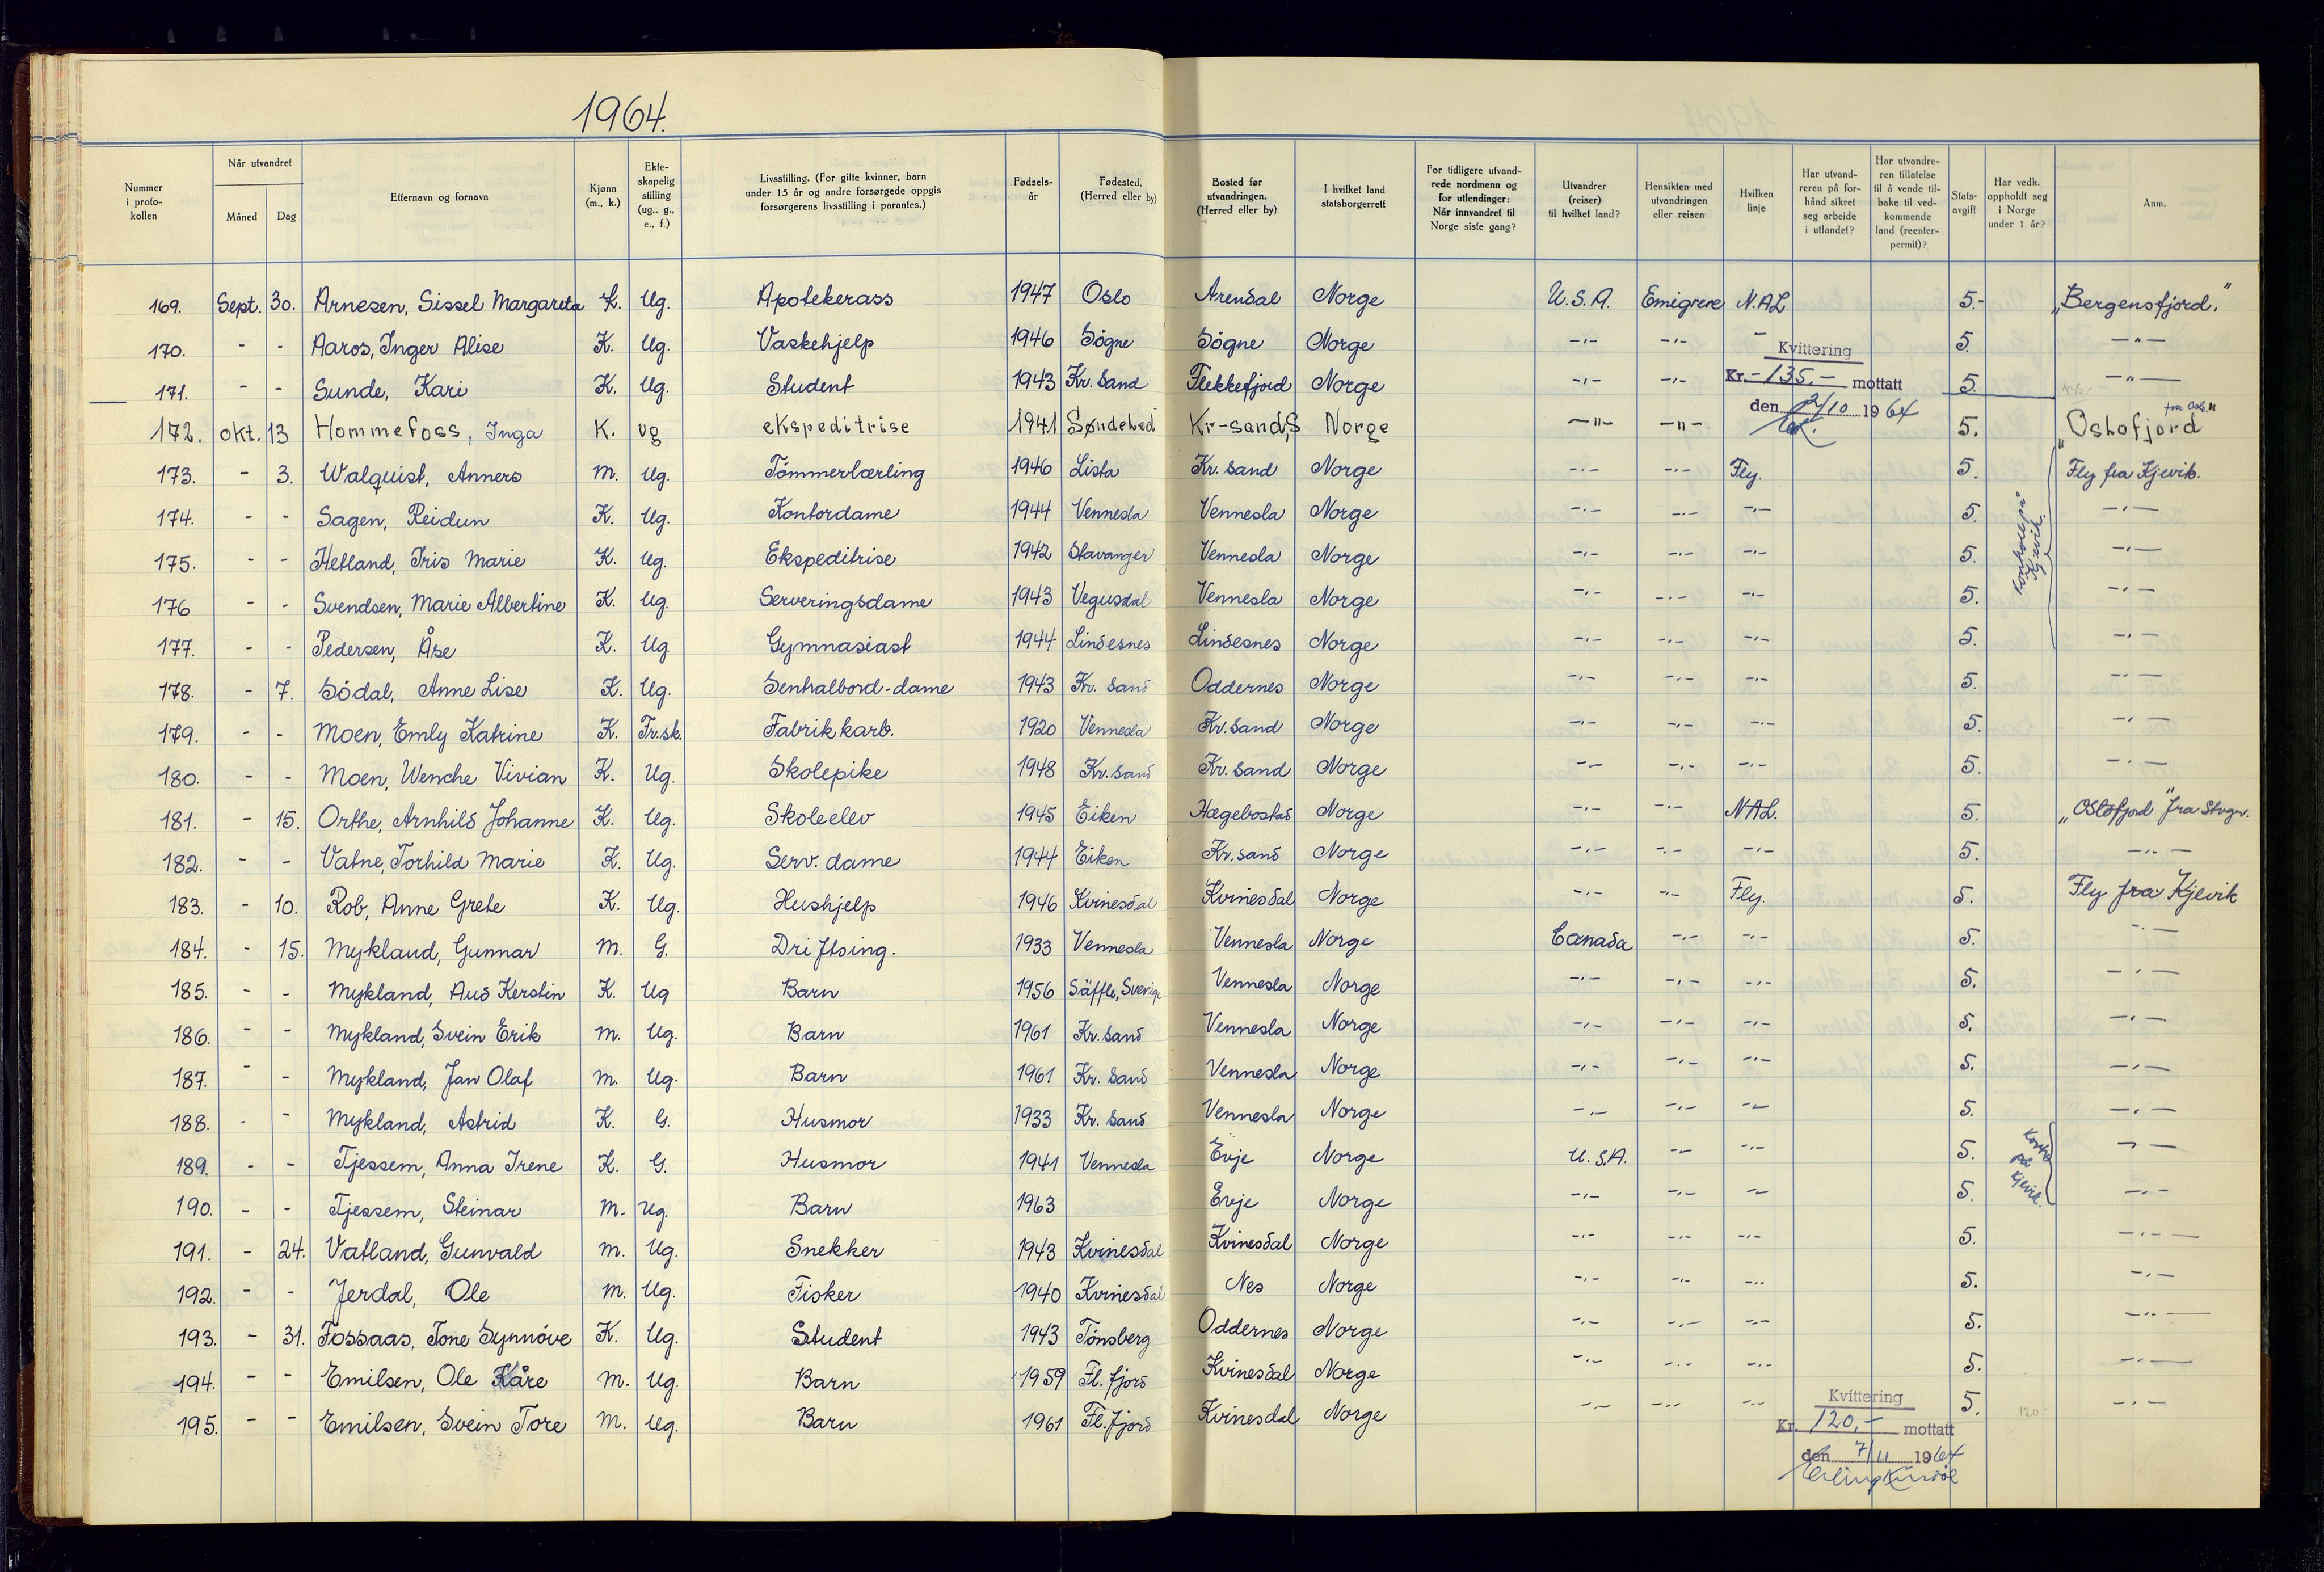 1964.
Nummer i proto-kollen | Når utvandret Måned Dag | Etternavn og fornavn | Kjønn (m., k.) | Ekte-skapelig stilling (ug., g., e., f.) | Livsstilling. (For gifte kvinner, barn under 15 år og andre forsørgede oppgis forsørgerens livsstilling i parantes.) | Fødsels-år | Fødested. (Herred eller by) | Bosted før utvandringen. (Herred eller by) | I hvilket land statsborgerrett | For tidligere utvand-rede nordmenn og for utlendinger: Når innvandret til Norge siste gang? | Utvandrer (reiser) til hvilket land? | Hensikten med utvandringen eller reisen | Hvilken linje | Har utvand-reren på for-hånd sikret seg arbeide i utlandet? | Har utvandre-ren tillatelse til å vende til-bake til ved-kommende land (reenter-permit)? | Stats-avgift | Har vedk. oppholdt seg i Norge under 1 år? | Anm.
169. Sept. 30. Arnesen, Sissel Margareta K. Ug. Apotekerass 1947 Oslo Arendal Norge U.S.A. Emigrere N.A.L 5.- „Bergensfjord."
170. - - Aaros, Inger Alise K. Ug. Vaskehjelp 1946 Søgne Søgne Norge -"- -"- - 5. -"-
Kvittering
171. - - Sunde, Kari K. Ug. Student 1943 Kr. Sand Flekkefjord Norge -"- -"- 5. -"-
Kr. -135.- mottatt
den 2/10 1964
172. Okt. 13 Hommefoss, Inga K. ug ekspeditrise 1941 Søndeled Kr-sand,S Norge -"- -"- 5. „Oslofjord" fra Oslo
173. - 3. Walquist, Anners M. Ug. Tømmerlærling 1946 Lista Kr. Sand Norge -"- -"- Fly. 5. Fly fra Kjevik.
174. - - Sagen, Reidun K. Ug. Kontordame 1944 Vennesla Vennesla Norge -"- -"- -"- 5. -"-
Kontroll på Kjevik
175. - - Hetland, Iris Marie K. Ug. Ekspeditrise 1942 Stavanger Vennesla Norge -"- -"- -"- 5. -"-
176 - - Svendsen, Marie Albertine K. Ug. Serveringsdame 1943 Vegusdal Vennesla Norge -"- -"- -"- 5. -"-
177. - - Pedersen, Åse K. Ug. Gymnasiast 1944 Lindesnes Lindesnes Norge -"- -"- -"- 5. -"-
178. - 7. Södal, Anne Lise K. Ug. Sentralbord-dame 1943 Kr. Sand Oddernes Norge -"- -"- -"- 5. -"-
179. - - Moen, Emly Katrine K. Fr.sk. Fabrikkarb. 1920 Vennesla Kr. Sand Norge -"- -"- -"- 5. -"-
180. - - Moen, Wenche Vivian K. Ug. Skolepike 1948 Kr. Sand Kr. Sand Norge -"- -"- -"- 5. -"-
181. - 15. Orthe, Arnhild Johanne K. Ug. Skoleelev 1945 Eiken Hægebostad Norge -"- -"- NAL. 5. „Oslofjord" fra Stvgr.
182. - - Vatne, Torhild Marie K. Ug. Serv. dame 1944 Eiken Kr. sand Norge -"- -"- -"- 5. -"-
183. - 10. Rob, Anne Grete K. Ug. Hushjelp 1946 Kvinesdal Kvinesdal Norge -"- -"- Fly. 5. Fly fra Kjevik
184. - 15. Mykland, Gunnar M. G. Driftsing. 1933 Vennesla Vennesla Norge Canada -"- -"- 5. -"-
185. - - Mykland, Aud Kerstin K. Ug Barn 1956 Säffle, Sverige Vennesla Norge -"- -"- -"- 5. -"-
186. - - Mykland, Svein Erik M. Ug. Barn 1961 Kr. Sand Vennesla Norge -"- -"- -"- 5. -"-
187. - - Mykland, Jan Olaf M. Ug. Barn 1961 Kr. Sand Vennesla Norge -"- -"- -"- 5. -"-
188. - - Mykland, Astrid K. G. Husmor 1933 Kr. Sand Vennesla Norge -"- -"- -"- 5. -"-
189. - - Tjessem, Anna Irene K. G. Husmor 1941 Vennesla Evje Norge U.S.A. -"- -"- 5. -"-
på Kjevik.
190. - - Tjessem, Steinar M. Ug. Barn 1963 Evje Norge -"- -"- -"- 5. -"-
191. - 24. Vatland, Gunvald M. Ug. Snekker 1943 Kvinesdal Kvinesdal Norge -"- -"- -"- 5. -"-
192. - - Jerdal, Ole M. Ug. Fisker 1940 Kvinesdal Nes Norge -"- -"- -"- 5. -"-
193. - 31. Fossaas, Tone Synnöve K. Ug. Student 1943 Tönsberg Oddernes Norge -"- -"- -"- 5. -"-
194. - - Emilsen, Ole Kåre M. Ug. Barn 1959 Fl. fjord Kvinesdal Norge -"- -"- -"- 5. -"-
195. - - Emilsen, Svein Tore M. Ug. Barn 1961 Fl. fjord Kvinesdal Norge -"- -"- -"- 5. 120.- -"-
Kvittering
Kr. 120,- mottatt
den 7/11 1964